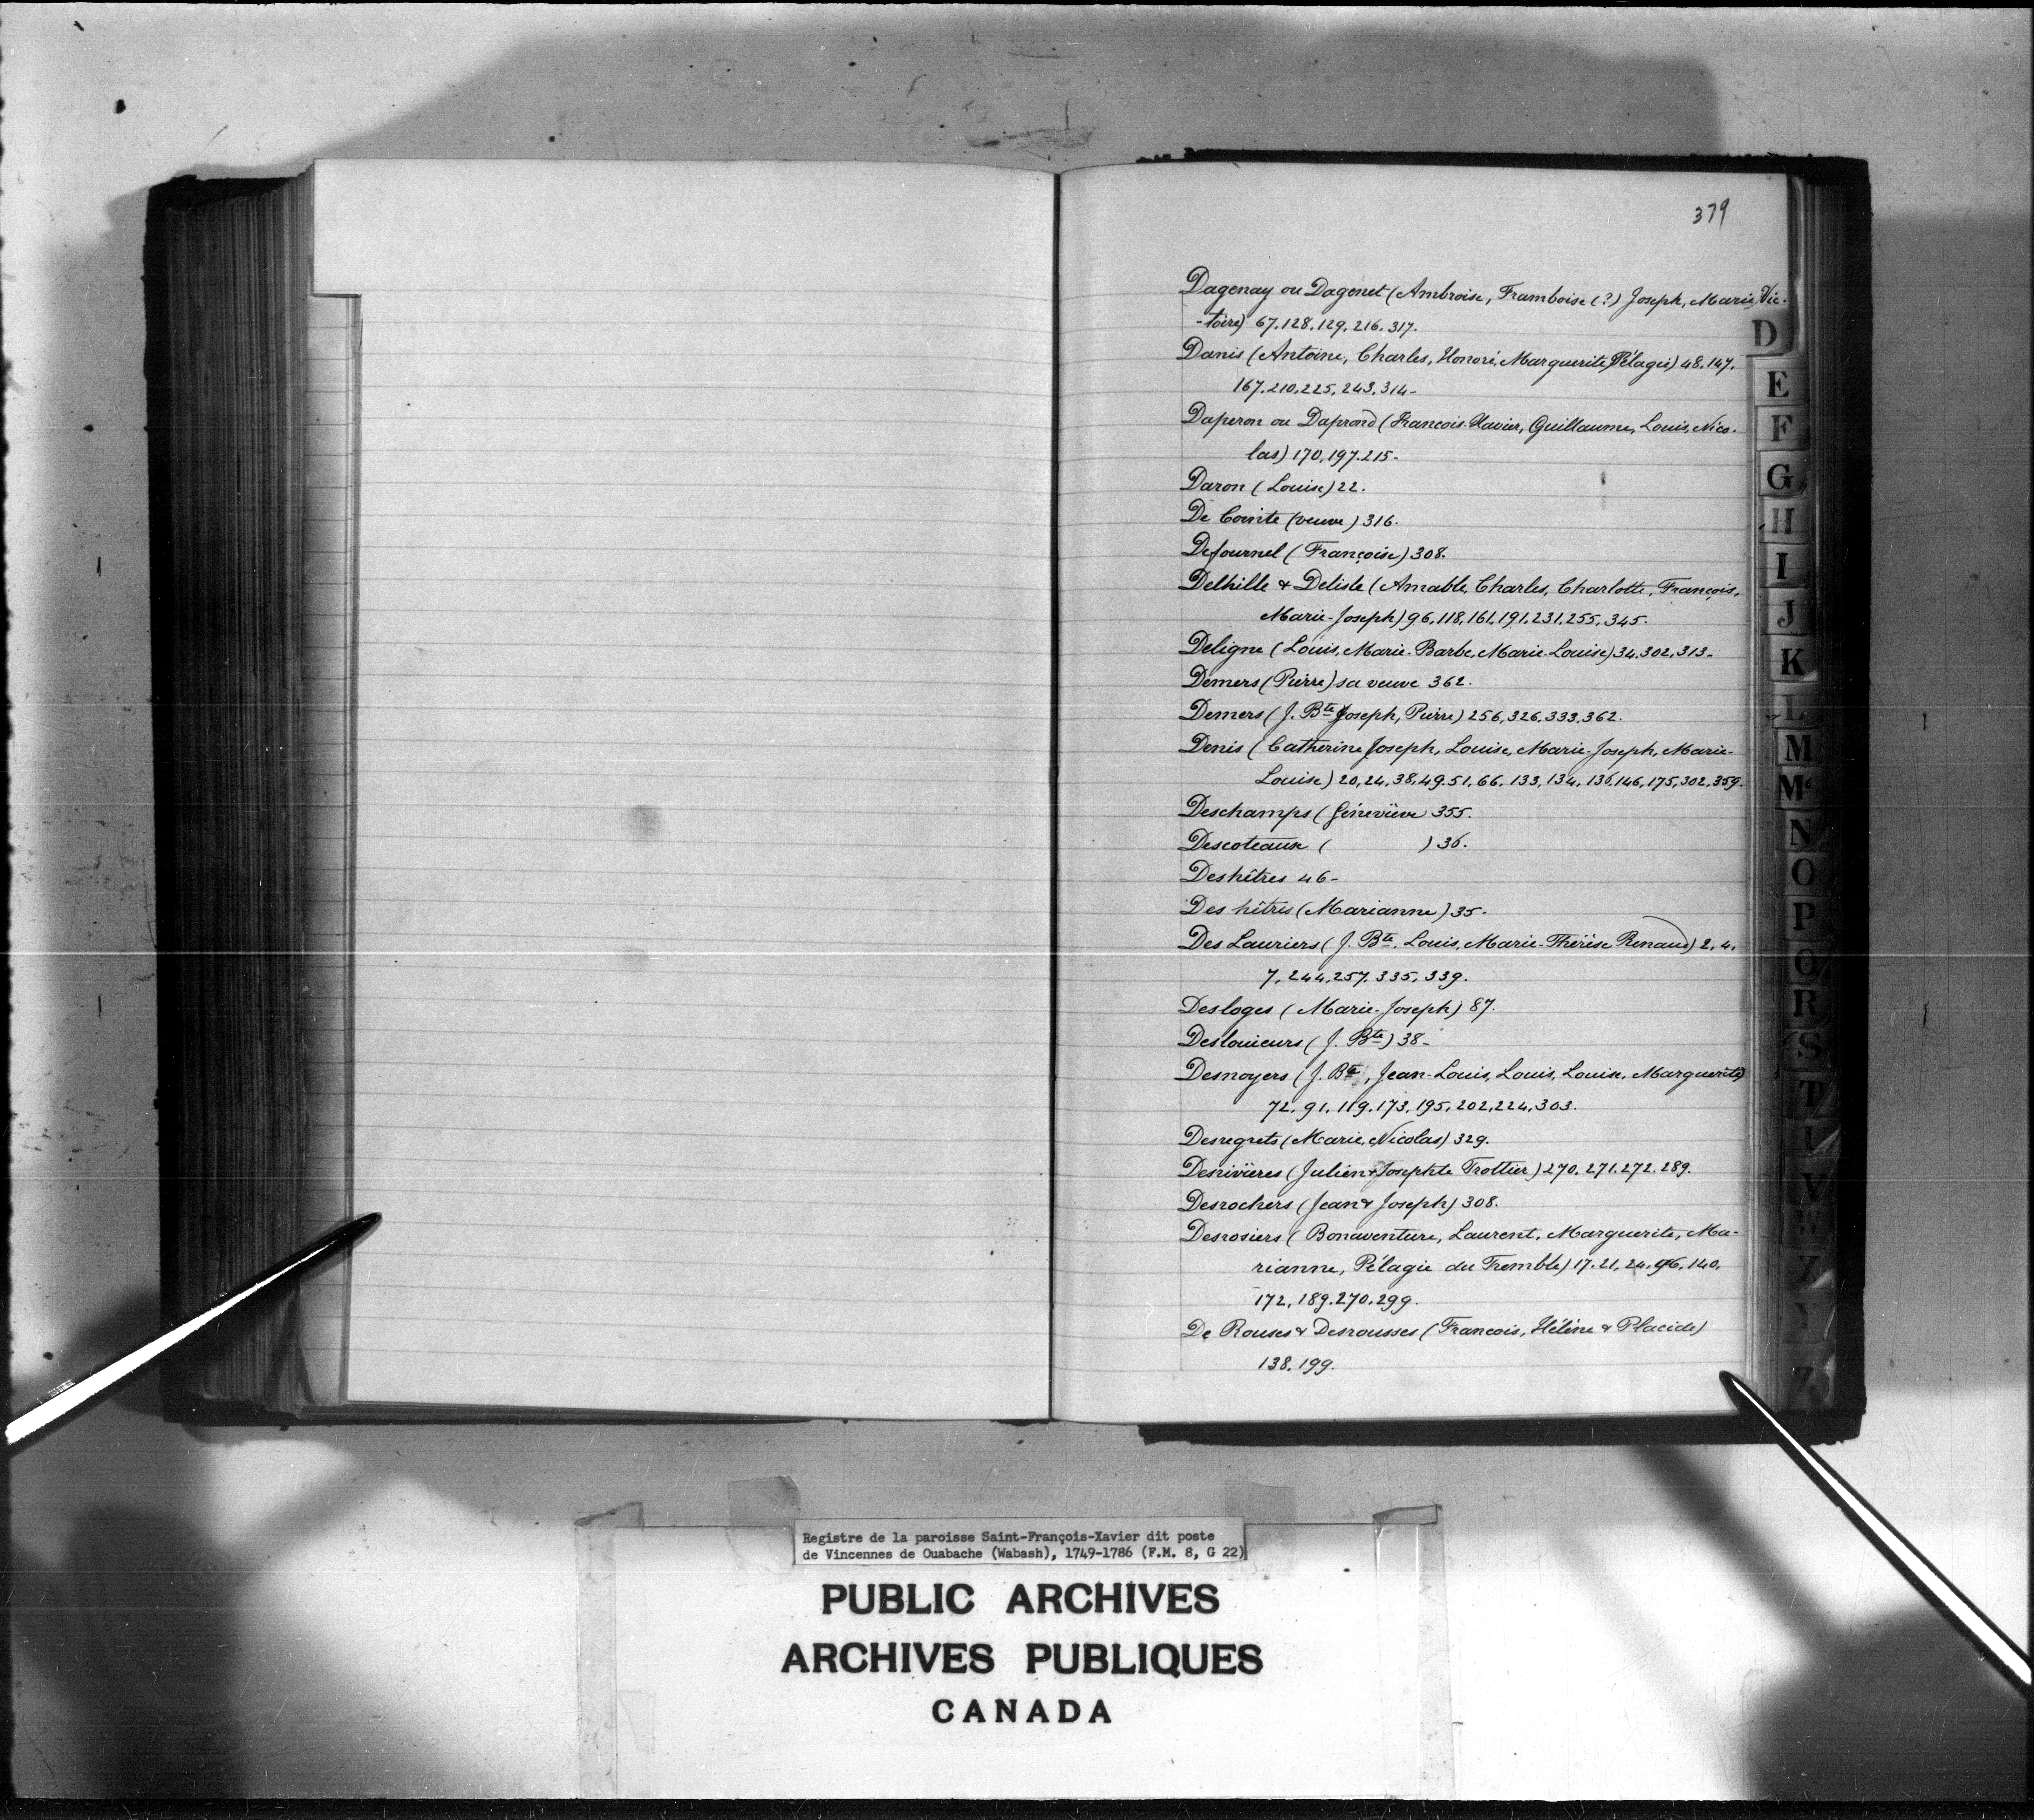 379
Dagenay ou Dagenet (Ambroise, Framboise (?) Joseph, Marie, Vic-
-toire) 67.128.129.216.317.
Danis (Antoine, Charles, Honoré, Marguerite, Pélagie) 48.147.
167.210.225.243.314-
Daperon ou Daprond (Francois-Xavier, Guillaume, Louis, Nico-
las) 170.197.215-
Daron (Louise) 22.
De Cointe (veuve) 316.
Defournel (Françoise) 308.
Delhille & Delisle (Amable, Charles, Charlotte, François,
Marie-Joseph) 96.118.161.191.231.255.345.
Deligne (Louis, Marie-Barbe, Marie-Louise) 34.302.313-
Demers (Pierre) sa veuve 362.
Demers (J. Bte Joseph, Pierre) 256.326.333.362.
Denis (Catherine Joseph, Louise, Marie-Joseph, Marie-
Louise) 20.24.38.49.51.66.133.134.136.146.175.302.359.
Deschamps (Géneviève 355.
Descoteaux ( ) 36.
Deshêtres 46-
Des hêtres (Marianne) 35.
Des Lauriers (J. Bte, Louis, Marie-Thérèse Renaud) 2.4.
7.244.257.335.339.
Desloges (Marie-Joseph) 87.
Deslouieurs (J. Bte) 38-
Desnoyers (J. Bte, Jean-Louis, Louis, Louise, Marguerite)
72.91.119.173.195.202.224.303.
Desregrets (Marie, Nicolas) 329.
Desrivières (Julien & Josephte Trottier) 270.271.272.289.
Desrochers (Jean & Joseph) 308.
Desrosiers (Bonaventure, Laurent, Marguerite, Ma-
rianne, Pélagie du Tremble) 17.21.24.96.140.
172.189.270.299.
De Rouses & Desrousses (Francois, Hélène & Placide)
138.199.
D
E
F
G
H
I
J
K
L
M
Mc
N
O
P
Q
R
S
T
U
V
W
X
Y
Z
Registre de la paroisse Saint-François-Xavier dit poste
de Vincennes de Ouabache (Wabash), 1749-1786 (F.M. 8, G 22)
PUBLIC ARCHIVES
ARCHIVES PUBLIQUES
CANADA